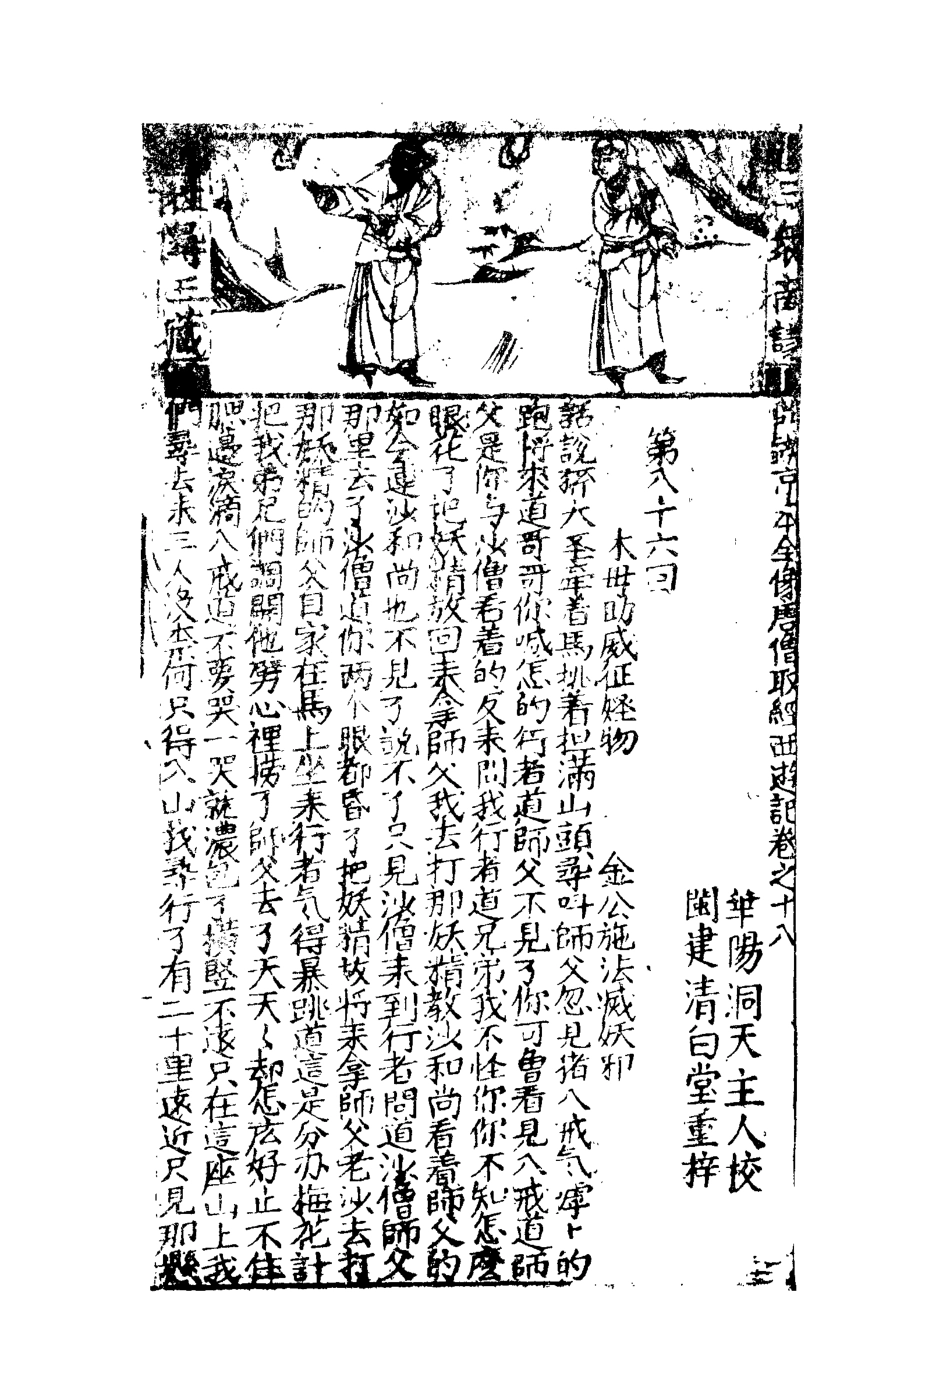 三衆商議
往尋三藏
鼎鐫京本全像唐僧取經西遊記卷之十八
華陽洞天主人校
閩建清白堂重梓
第八十六回
木母助威征怪物　金公施法滅妖邪
話說孫大圣牽着馬挑着担滿山頭尋叫師父忽見猪八戒气嘑卜的
跑將來道哥哥你喊怎的行者道師父不見了你可曾看見八戒道師
父是你与沙僧看着的反来問我行者道兄弟我不怪你你不知怎麽
眼花了把妖精放回来拿師父我去打那妖精教沙和尚看着師父的
如今連沙和尚也不見了說不了只見沙僧来到行者問道沙僧師父
那里去了沙僧道你两个眼都昏了把妖精放将来拿師父老沙去打
那妖精的師父自家在馬上坐来行者气得暴跳道這是分办梅花計
把我弟兄們調開他劈心裡捞了師父去了天天〻却怎庅好止不住
腮邊淚滴八戒道不要哭一哭就濃包了横竪不遠只在這座山上我
們尋去来三人没奈何只得入山找尋行了有二十里遠近只見那懸